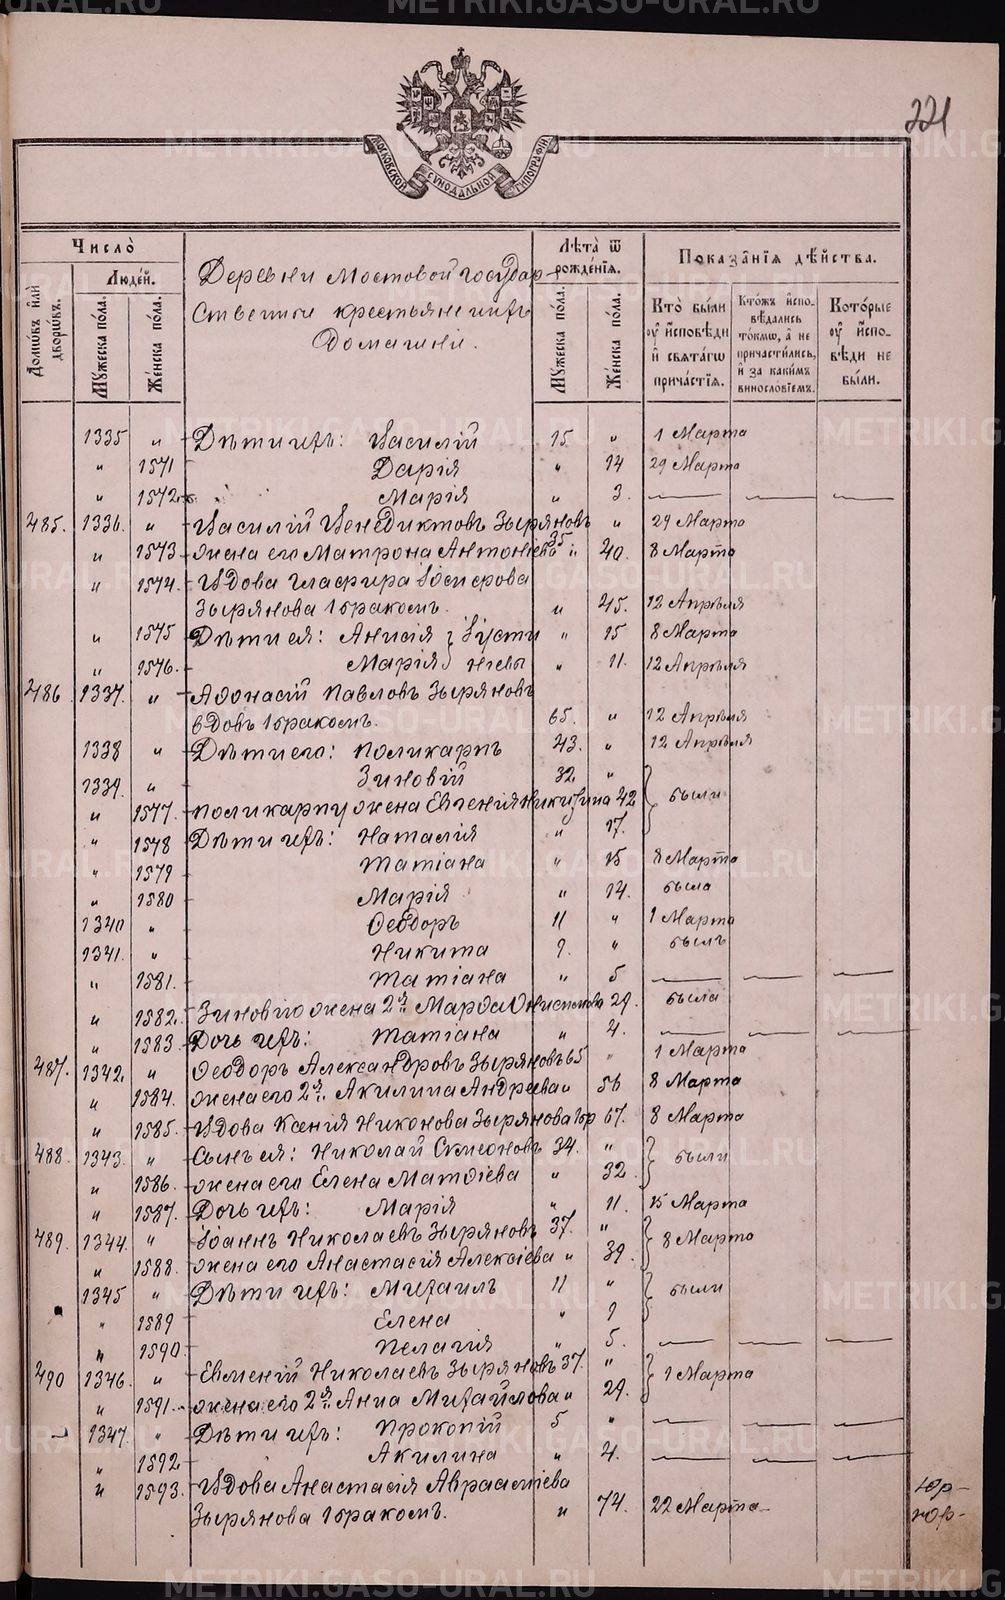 METRIKI.GASO-URAL.RU
221
МОСКОВСКОЙ СѴНОДАЛЬНОЙ ТИПОГРАФІИ
Число̀
Домѡ́въ и҆лѝ дворѡ́въ.
Люде́й.
Мꙋ́жеска по́ла.
Же́нска по́ла.
Деревни Мостовой государ-
ственные крестьяне и ихъ
Домашніи.
Лѣ́та ѿ рожде́нїѧ.
Мꙋ́жеска по́ла.
Же́нска по́ла.
Показа̑нїѧ дѣ́йства.
Кто̀ бы́ли оу҆ и҆́сповѣди и҆ свѧта́гѡ прича́стїѧ.
Кто́жъ и҆спо-вѣ́дались то́кмѡ, а҆ не причасти́лись, и҆ за каки́мъ винослові́емъ.
Кото́рые оу҆ и҆́спо-вѣди не бы́ли.
1335 " Дѣти ихъ: Василій 15 " 1 Марта
" 1571 Дарія " 14 29 Марта
" 1572 Марія " 3 — — —
485. 1336. " Василій Венедиктовъ Зыряновъ 35 " 29 Марта
" 1573 жена его Матрона Антоніева " 40. 8 Марта
" 1574. Вдова Гласфира Іосифова
Зырянова 1 бракомъ. " 45. 12 Апрѣля
" 1575 Дѣти ея: Анисія } Іусти " 15 8 Марта
" 1576. Марія } ніевы " 11. 12 Апрѣля
486 1337. " Аѳонасій Павловъ Зыряновъ
вдовъ 1 бракомъ. 65. " 12 Апрѣля
1338 " Дѣти его: Поликарпъ 43. " 12 Апрѣля
1339. " Зиновій 32. " } были
" 1577. Поликарпу жена Евгенія Никитина 42
" 1578 Дѣти ихъ: Наталія " 17.
" 1579 Татіана " 15 8 Марта
" 1580 Марія " 14. была
1340 " Ѳеодоръ 11 " 1 Марта
1341. " Никита 9. " былъ
" 1581. Татіана " 5 — — —
" 1582. Зиновію жена 2я Марѳа Онисимова 29. была
" 1583 Дочь ихъ: Татіана " 4. — — —
487. 1342. " Ѳеодоръ Александровъ Зыряновъ 65 " 1 Марта
" 1584. жена его 2я Акилина Андреева " 56 8 Марта
" 1585. Вдова Ксенія Никонова Зырянова 1бр 67. 8 Марта
488. 1343. " Сынъ ея: Николай Симеоновъ 34. " } были
" 1586. жена его Елена Матѳіева " 32.
" 1587. Дочь ихъ: Марія " 11. 15 Марта
489. 1344. " Іоаннъ Николаевъ Зыряновъ 37. " } 8 Марта
" 1588. жена его Анастасія Алексіева " 39.
1345 " Дѣти ихъ: Михаилъ 11 " } были
" 1589 Елена " 9
" 1590 Пелагія " 5. — — —
490 1346. " Евменій Николаевъ Зыряновъ 37. " } 1 Марта
" 1591. жена его 2я Анна Михайлова " 29.
1347. " Дѣти ихъ: Прокопій 5 " — — —
" 1592 Акилина " 4. — — —
" 1593. Вдова Анастасія Авраамиева
Зырянова 1 бракомъ. " 74. 22 Марта
METRIKI.GASO-URAL.RU